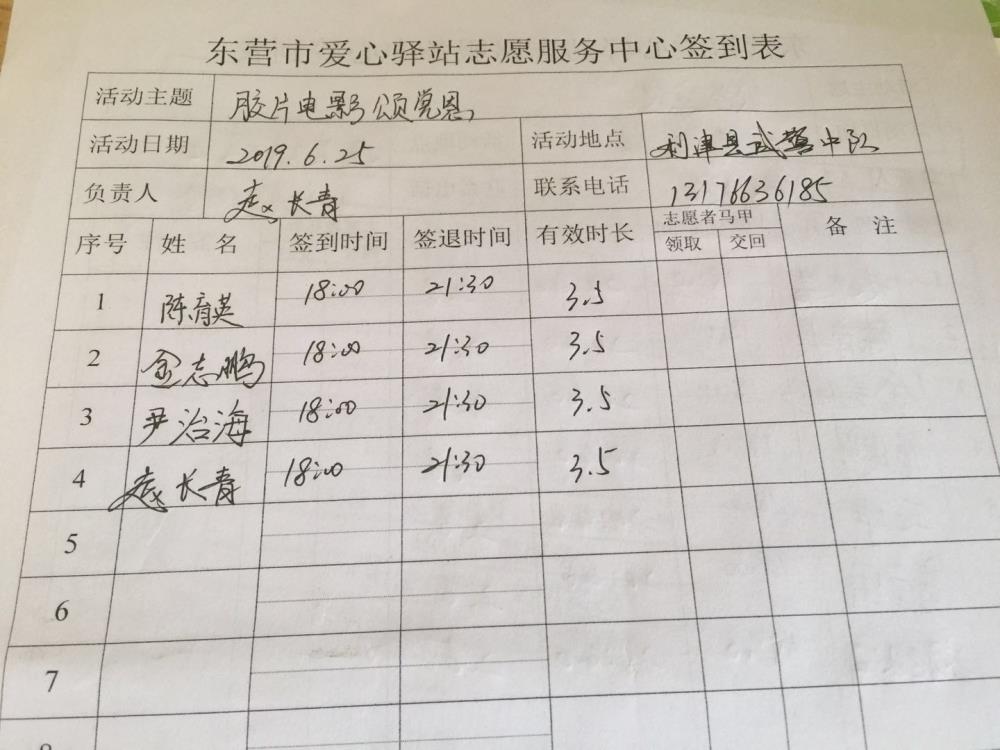 东营市爱心驿站志愿服务中心签到表
活动主题 胶片电影颂党恩
活动日期 2019.6.25 活动地点 利津县武警中队
负责人 赵长青 联系电话 13176636185
序号 姓 名 签到时间 签退时间 有效时长 志愿者马甲 备 注
领取 交回
1 陈育英 18:00 21:30 3.5
2 金志鹏 18:00 21:30 3.5
3 尹治海 18:00 21:30 3.5
4 赵长青 18:00 21:30 3.5
5
6
7
8